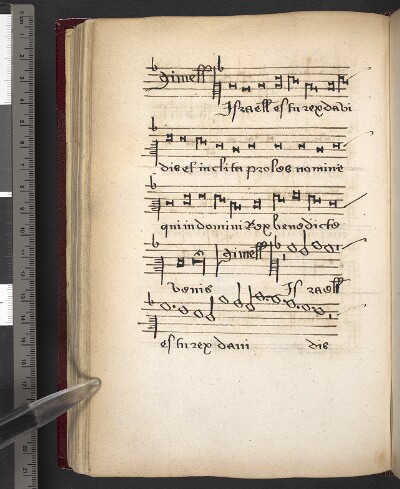 gimell
Israell es tu rex davi
dis et inclita proles nomine
qui in domini Rex benedicte
venis gimell Is raell
es tu rex davi dis